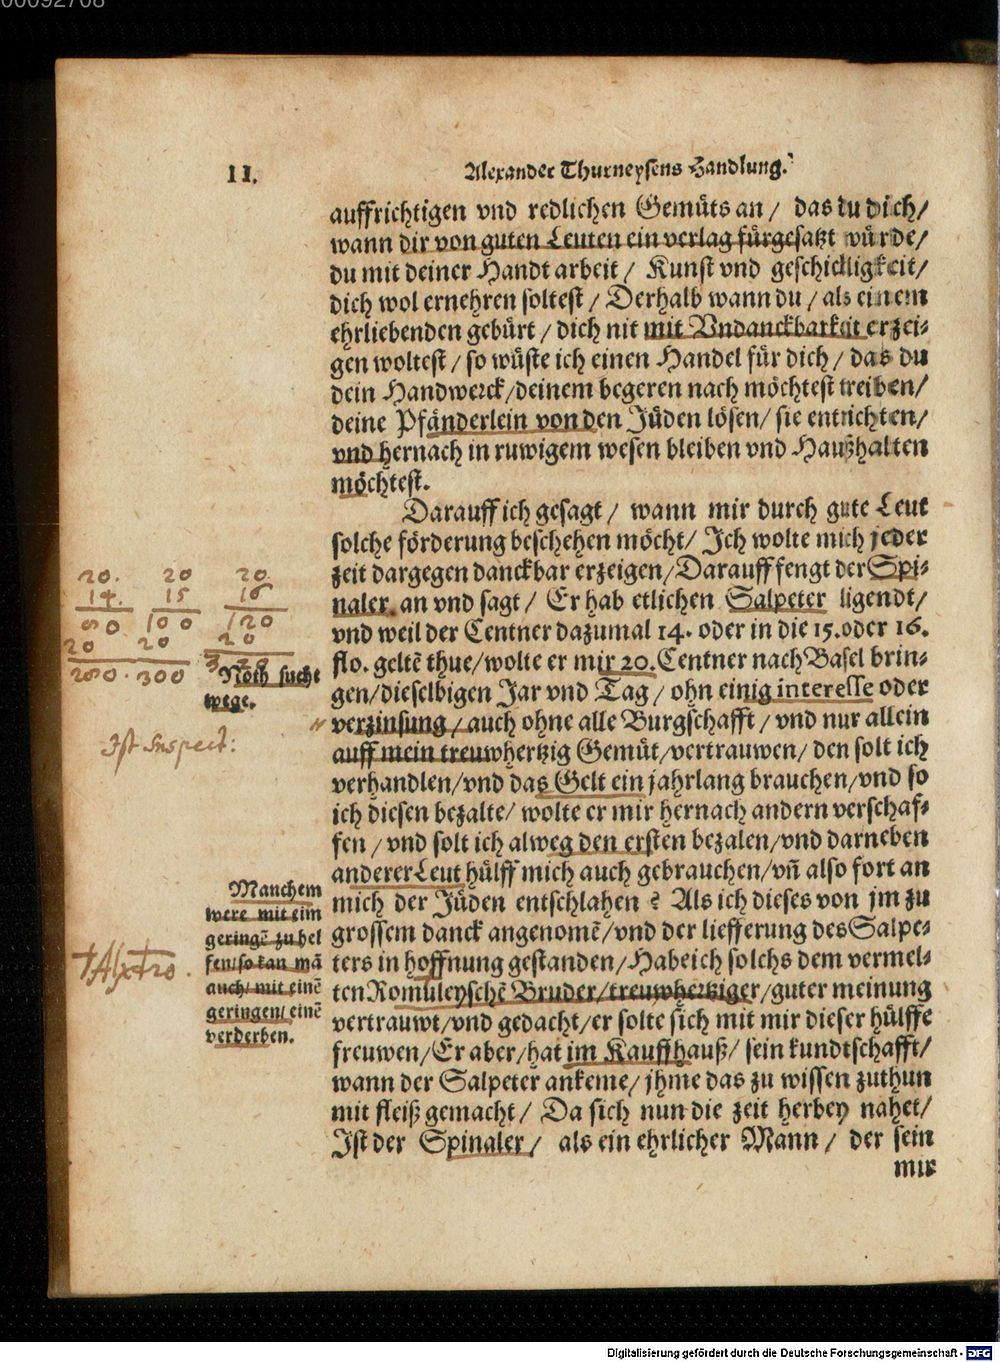 00092708
II.
Alexander Thurneysens Handlung.
auffrichtigen vnd redlichen Gemüts an / das du dich /
wann dir von guten Leuten ein verlag fürgesatzt würde /
du mit deiner Handt arbeit / Kunst vnd geschickligkeit /
dich wol ernehren soltest / Derhalb wann du / als einem
ehrliebenden gebürt / dich nit mit Vndanckbarkeit erzei⸗
gen woltest / so wüste ich einen Handel für dich / das du
dein Handwerck / deinem begeren nach möchtest treiben /
deine Pfänderlein von den Jüden lösen / sie entrichten /
vnd hernach in ruwigem wesen bleiben vnd Haußhalten
möchtest.
Darauff ich gesagt / wann mir durch gute Leut
solche förderung beschehen möcht / Ich wolte mich jeder
zeit dargegen danckbar erzeigen / Darauff fengt der Spi⸗
naler, an vnd sagt / Er hab etlichen Salpeter ligendt /
vnd weil der Centner dazumal 14. oder in die 15. oder 16.
flo. geltē thue / wolte er mir 20. Centner nach Basel brin⸗
gen / dieselbigen Jar vnd Tag / ohn einig interesse oder
verzinsung / auch ohne alle Burgschafft / vnd nur allein
auff mein treuwhertzig Gemüt / vertrauwen / den solt ich
verhandlen / vnd das Gelt ein jahrlang brauchen / vnd so
ich diesen bezalte / wolte er mir hernach andern verschaf⸗
fen / vnd solt ich alweg den ersten bezalen / vnd darneben
anderer Leut hülff mich auch gebrauchen / vñ also fort an
mich der Jüden entschlahen ? Als ich dieses von jm zu
grossem danck angenomē / vnd der liefferung des Salpe⸗
ters in hoffnung gestanden / Habe ich solchs dem vermel⸗
ten Romuleyschē Bruder / treuwhertziger / guter meinung
vertrauwt / vnd gedacht / er solte sich mit mir dieser hülffe
freuwen / Er aber / hat im Kauffhauß / sein kundtschafft /
wann der Salpeter ankeme / jhme das zu wissen zuthun
mit fleiß gemacht / Da sich nun die zeit herbey nahet /
Ist der Spinaler / als ein ehrlicher Mann / der sein
mir
20. 20 20.
14. 15 16
80 100 120
20 20 20
280. 300
Noth sucht
wege.
Ist Suspect:
Manchem
were mit eim
geringē zu hel
fen / so kan mā
auch / mit einē
geringen / einē
verderben.
Digitalisierung gefördert durch die Deutsche Forschungsgemeinschaft - DFG